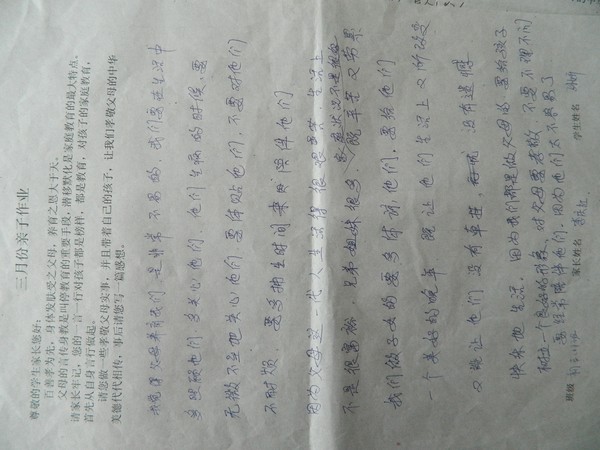 三月份亲子作业
尊敬的学生家长您好：
百善孝为先，身体发肤受之父母，养育之恩大于天。
父母的言传身教是叫停教育的重要手段，潜移默化是家庭教育的最大特点，
请家长牢记，您的一言一行对孩子都是榜样，都是教育，对孩子的家庭教育，
首先从自身言行做起。
请您做一些孝敬父母实事，并且带着自己的孩子，让我们孝敬父母的中华
美德代代相传，事后请您写一篇感想。
我觉得父母养育我们是非常不易的，我们要在生活中
多照顾他们，多关心他们，他们生病的时候，要
无微不至把关心他们，要体贴他们，不要对他们
不耐烦 要多抽出时间来陪伴他们
因为父母这一代人生活得很艰苦，生活上
不是很富裕，兄弟姐妹很多，既辛苦又劳累
我们做子女的要多体谅他们，要给他们
一个美好的晚年 既让他们生活上又所改变
又能让他们没有牵挂，没有遗憾
快乐地生活，因为我们都是做父母的要给孩子
树立一个良好的形象，对父母要孝敬，不要不理不问
要经常陪伴他们，因为他们太不容易了
班级 家长姓名 学生姓名